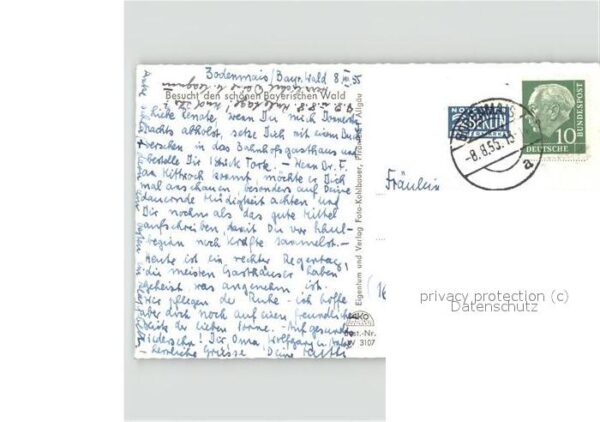 Bodenmais/Bayr. Wald 8.VIII.55
Besucht den schönen Bayerischen Wald
Liebe Renate, wenn Du mich Donnerst.
abholst, setze Dich mit einem Buch
in das Bahnhofsgasthaus und
bestelle Dir 1 Stück Torte. – Wenn Dr. F.
am Mittwoch kommt möchte er Dich
mal anschauen, besonders auf Deine
dauernde Müdigkeit achten und
Dir nochmals das gute Mittel
aufschreiben, damit Du vor Schul-
beginn noch Kräfte sammelst. –
Heute ist ein rechter Regentag,
die meisten Gasthäuser haben
geheizt was angenehm ist.
Wir pflegen der Ruhe – ich hoffe
aber doch noch auf einen freundlichen
Blick der lieben Sonne. – Auf gesundes
Wiedersehn! Der Oma, Wolfgang u.
herzliche Grüsse Deine
Eigentum und Verlag Foto-Kohlbauer, Pfronten Allgäu
AKO
Best.-Nr.
W 3107
Fräulein
NOTOPFER
2 BERLIN
STEUERMARKE
BODENMAIS
-8.8.55.
a
10
DEUTSCHE
BUNDESPOST
privacy protection (c)
Datenschutz